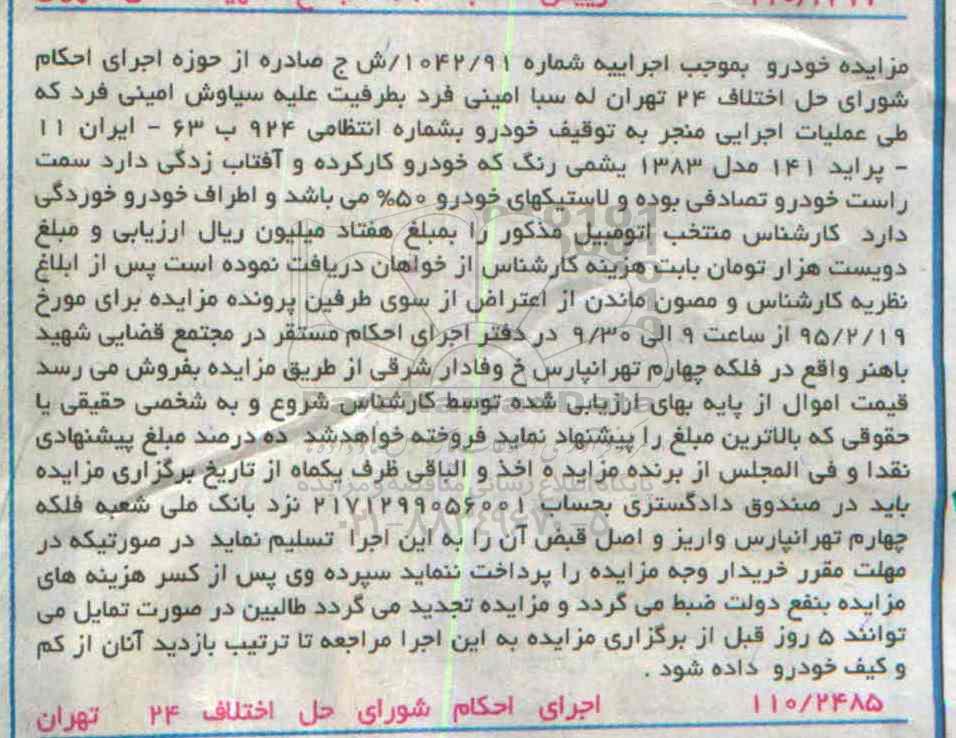 مزایده خودرو بموجب اجراییه شماره ۱۰۴۲/۹۱/ش ج صادره از حوزه اجرای احکام
شورای حل اختلاف ۲۴ تهران له سبا امینی فرد بطرفیت علیه سیاوش امینی فرد که
طی عملیات اجرایی منجر به توقیف خودرو بشماره انتظامی ۹۲۴ ب ۶۳ - ایران ۱۱
- پراید ۱۴۱ مدل ۱۳۸۳ یشمی رنگ که خودرو کارکرده و آفتاب زدگی دارد سمت
راست خودرو تصادفی بوده و لاستیکهای خودرو ۵۰% می باشد و اطراف خودرو خوردگی
دارد کارشناس منتخب اتومبیل مذکور را بمبلغ هفتاد میلیون ریال ارزیابی و مبلغ
دویست هزار تومان بابت هزینه کارشناس از خواهان دریافت نموده است پس از ابلاغ
نظریه کارشناس و مصون ماندن از اعتراض از سوی طرفین پرونده مزایده برای مورخ
۹۵/۲/۱۹ از ساعت ۹ الی ۹/۳۰ در دفتر اجرای احکام مستقر در مجتمع قضایی شهید
باهنر واقع در فلکه چهارم تهرانپارس خ وفادار شرقی از طریق مزایده بفروش می رسد
قیمت اموال از پایه بهای ارزیابی شده توسط کارشناس شروع و به شخصی حقیقی یا
حقوقی که بالاترین مبلغ را پیشنهاد نماید فروخته خواهدشد ده درصد مبلغ پیشنهادی
نقدا و فی المجلس از برنده مزاید ه اخذ و الباقی ظرف یکماه از تاریخ برگزاری مزایده
باید در صندوق دادگستری بحساب ۲۱۷۱۲۹۹۰۵۶۰۰۱ نزد بانک ملی شعبه فلکه
چهارم تهرانپارس واریز و اصل قبض آن را به این اجرا تسلیم نماید در صورتیکه در
مهلت مقرر خریدار وجه مزایده را پرداخت ننماید سپرده وی پس از کسر هزینه های
مزایده بنفع دولت ضبط می گردد و مزایده تجدید می گردد طالبین در صورت تمایل می
توانند ۵ روز قبل از برگزاری مزایده به این اجرا مراجعه تا ترتیب بازدید آنان از کم
و کیف خودرو داده شود .
۱۱۰/۲۴۸۵ اجرای احکام شورای حل اختلاف ۲۴ تهران